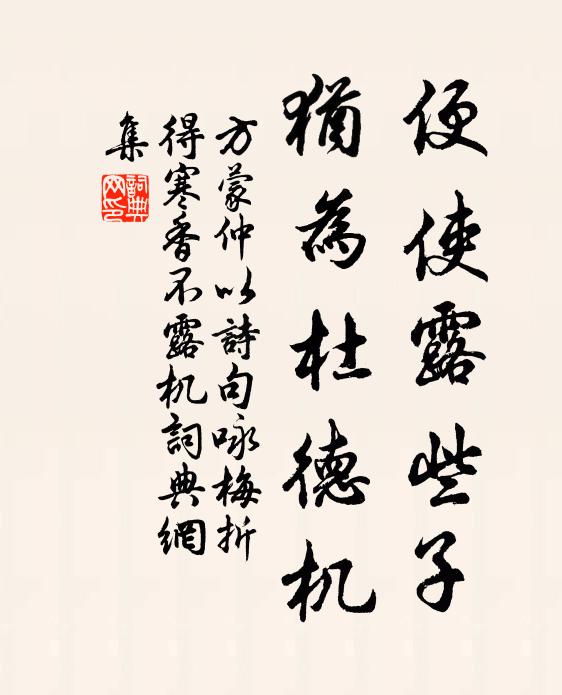 便使露些子
猶為杜德机
方蒙仲以詩句咏梅折
得寒香不露机詞典網
集
詞典网印